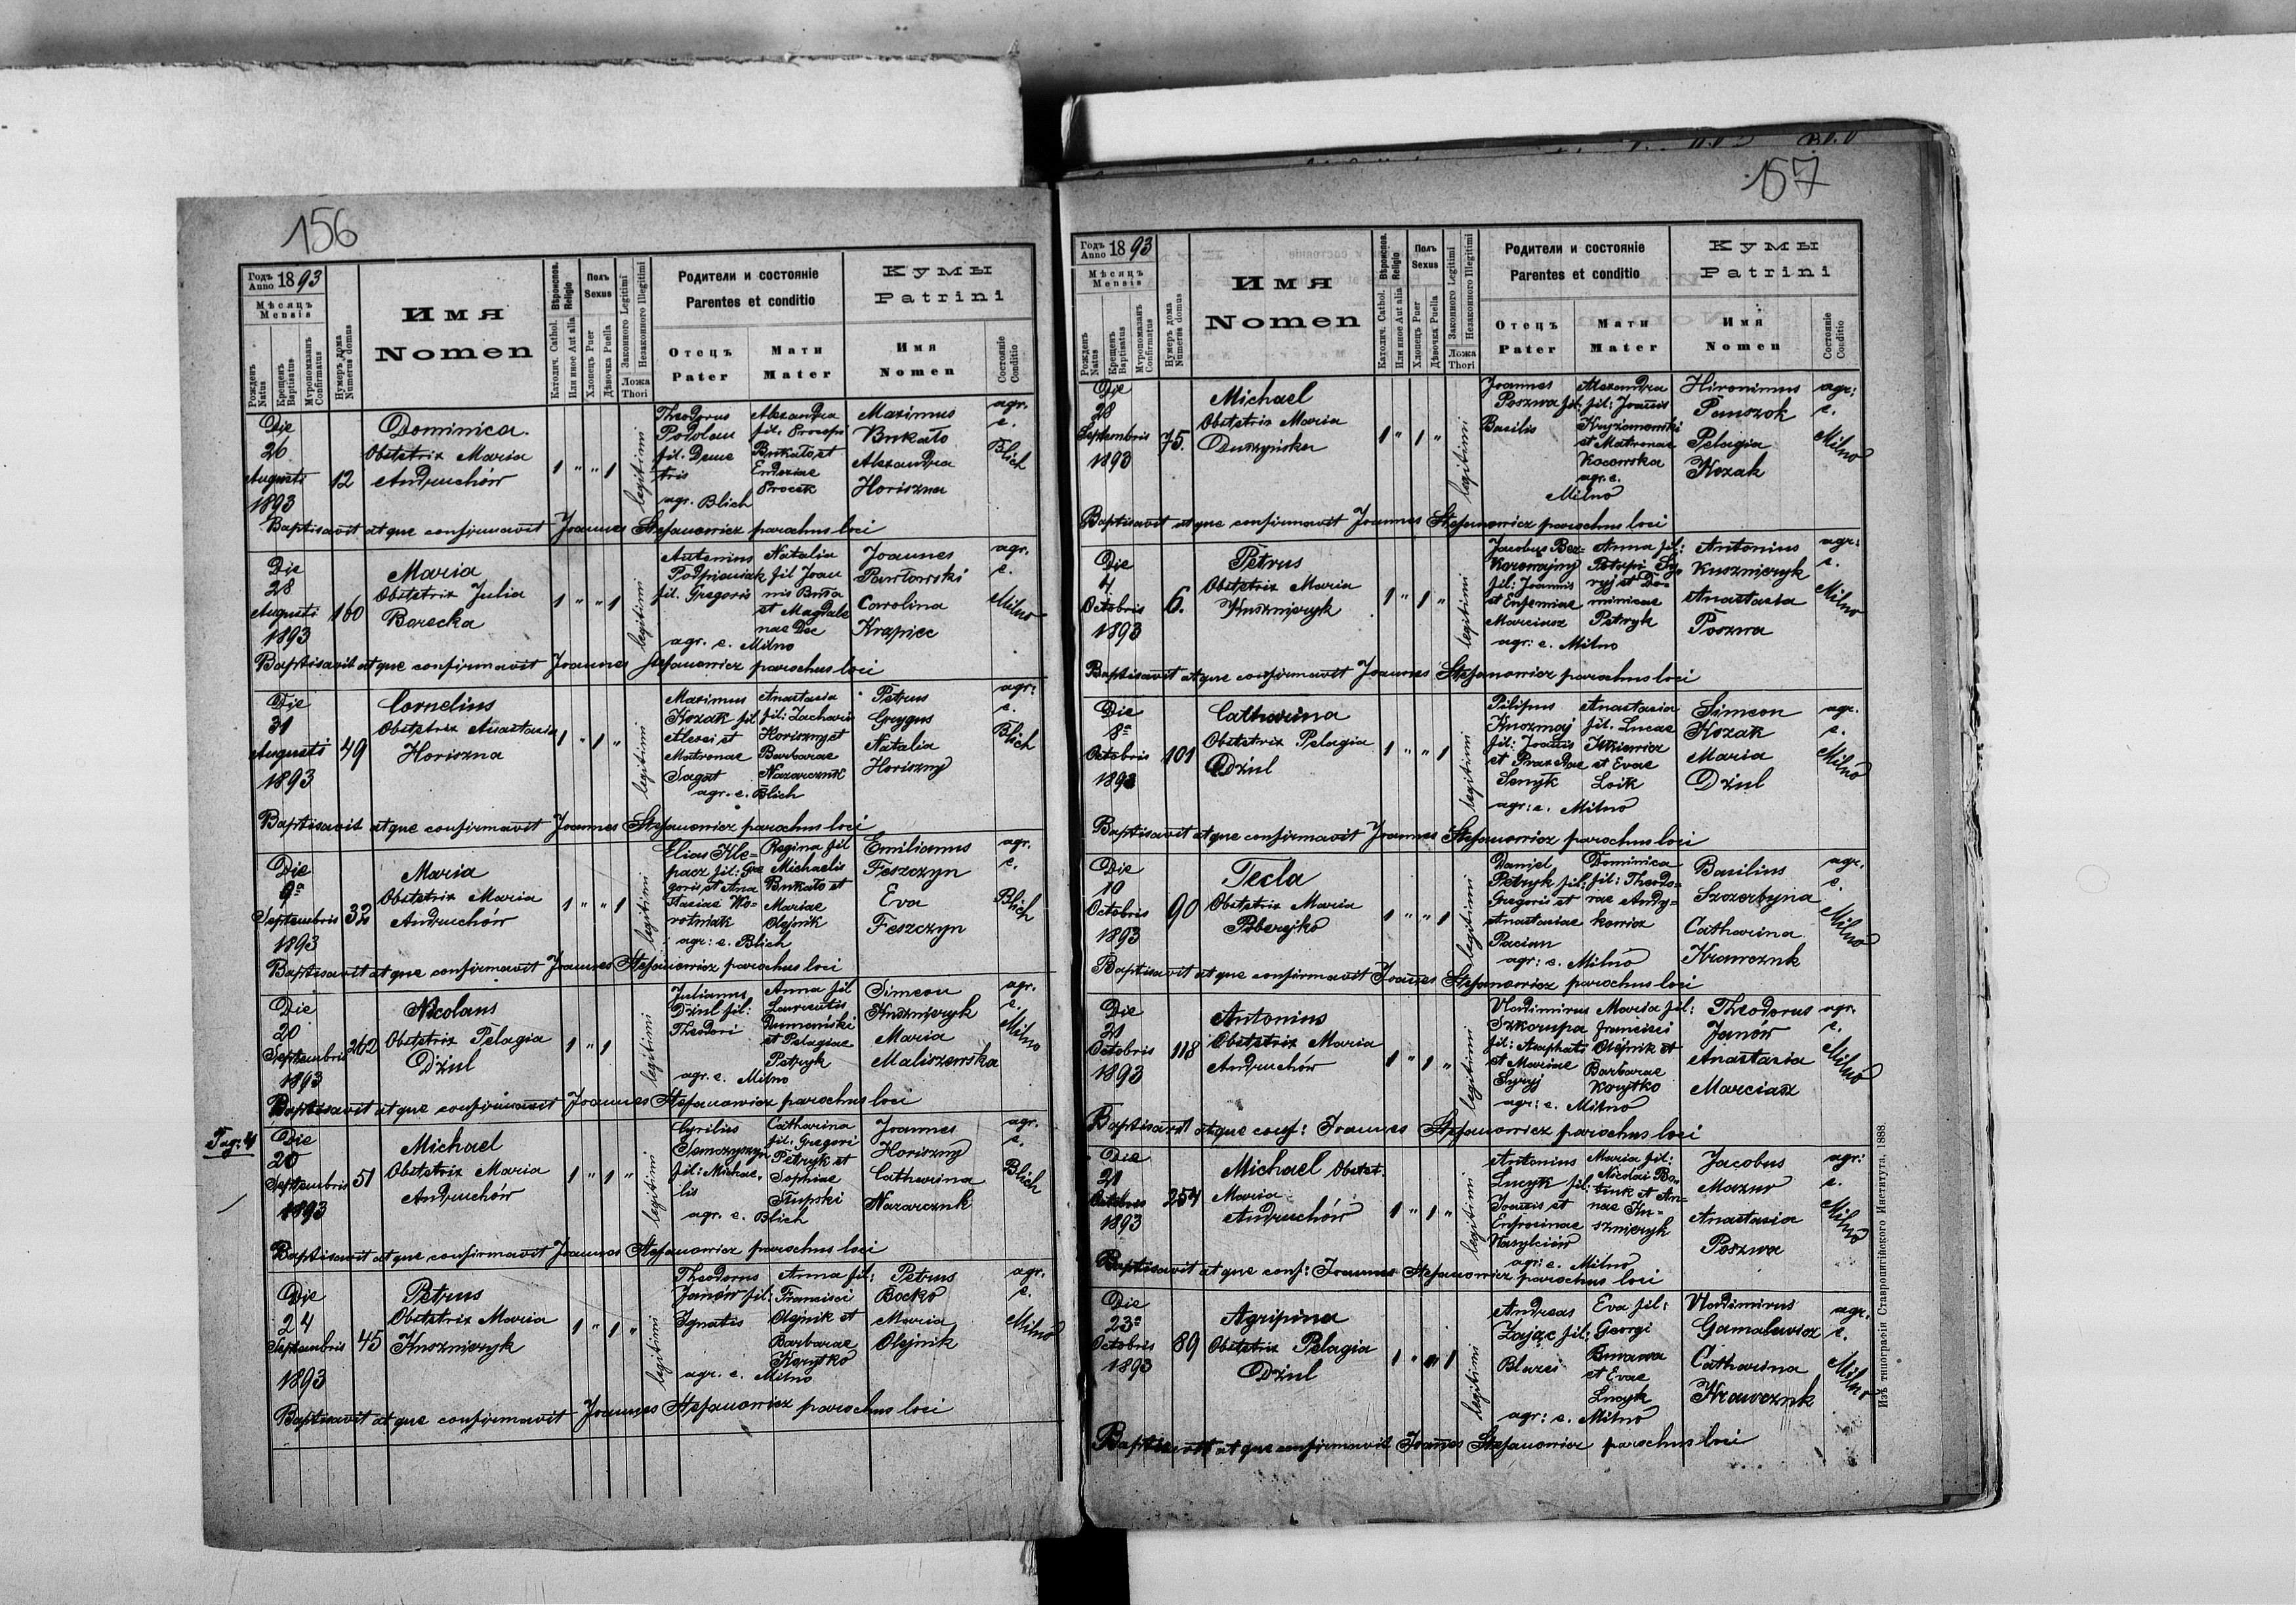 156
Годъ Anno 1893
Мѣсяцъ Mensis
Рожденъ Natus
Крещенъ Baptisatus
Мѵропомазанъ Confirmatus
Нумеръ дома Numerus domus
Имя Nomen
Вѣроисповѣд. Religio
Католич. Cathol.
Или иное Aut alia
Полъ Sexus
Хлопецъ Puer
Дѣвочка Puella
Законного Legitimi
Незаконного Illegitimi
Ложа Thori
Родители и состоянiе
Parentes et conditio
Отецъ Pater
Мати Mater
Кумы Patrini
Имя Nomen
Состоянiе Conditio
Die 26 Augusti 1893
12
Dominica
Obstetrix Maria
Andruchów
1 " " 1
legitimi
Theodorus Podolan fil. Deme tris
Alexandra fil: Procopi Bukało, et Eudoxiae Procek
agr. Blich
Maximus Bukało
Alexandra Horiszna
agr. c. Blich
Baptisavit atque confirmavit Joannes Stefanowicz parochus loci
Die 28 Augusti 1893
160
Maria
Obstetrix Julia
Borecka
1 " " 1
legitimi
Antonius Podpianiak fil. Gregoris
Natalia fil Joan nis Buła et Magdale nae Dec
agr. c. Milno
Joannes Pawłowski
Carolina Krapiec
agr. c. Milno
Baptisavit atque confirmavit Joannes Stefanowicz parochus loci
Die 31 Augusti 1893
49
Cornelius
Obstetrix Anastasia
Horiszna
1 " 1 "
legitimi
Maximus Kozak fil Alexei et Matronae Sagat
Anastasia fil: Zachari Horiszny et Barbarae Nazarczuk
agr. c. Blich
Petrus Gregus
Natalia Horiszny
agr: c. Blich
Baptisavit atque confirmavit Joannes Stefanowicz parochus loci
Die 9a Septembris 1893
32
Maria
Obstetrix Maria
Andruchów
1 " " 1
legitimi
Elias Kle= pacz fil: Gre goris, et Ana stasiae Wo= rotniak
Regina fil Michaelis Bukało et Mariae Olejnik
agr: c. Blich
Emilianus Feszczyn
Eva Feszczyn
agr. c. Blich
Baptisavit atque confirmavit Joannes Stefanowicz parochus loci
Die 20 Septembris 1893
262
Nicolaus
Obstetrix Pelagia
Dziul
1 " 1
legitimi
Julianus Dziul fil: Theodori
Anna fil Laurentis Dumański et Pelagiae Petryk
agr. c. Milno
Simeon Kuszmieryk
Maria Maliszewska
agr. c. Milno
Baptisavit atque confirmavit Joannes Stefanowicz parochus loci
Die 20 Septembris 1893
51
Michael
Obstetrix Maria
Andruchów
1 " 1 "
legitimi
Cyrilius Semczyszyn fil: Michae= lis
Catharina fil: Gregori Petryk et Sophiae Słupski
agr. c. Blich
Joannes Horiszny
Catharina Nazarczuk
agr. c. Blich
Baptisavit atque confirmavit Joannes Stefanowicz parochus loci
Die 24 Septembris 1893
45
Petrus
Obstetrix Maria
Kuszmieryk
1 " 1 "
legitimi
Theodorus Janów fil: Ignatis
Anna fil: Francisci Olejnik et Barbarae Korytko
agr. c. Milno
Petrus Bocko
Maria Olejnik
agr. c. Milno
Baptisavit atque confirmavit Joannes Stefanowicz parochus loci
157
Годъ Anno 1893
Мѣсяцъ Mensis
Рожденъ Natus
Крещенъ Baptisatus
Мѵропомазанъ Confirmatus
Нумеръ дома Numerus domus
Имя Nomen
Вѣроисповѣд. Religio
Католич. Cathol.
Или иное Aut alia
Полъ Sexus
Хлопецъ Puer
Дѣвочка Puella
Законного Legitimi
Незаконного Illegitimi
Ложа Thori
Родители и состоянiе
Parentes et conditio
Отецъ Pater
Мати Mater
Кумы Patrini
Имя Nomen
Состоянiе Conditio
Die 28 Septembris 1893
75.
Michael
Obstetrix Maria
Duszyńska
1 " 1 "
legitimi
Joannes Poszwa fil: Basilis
Alexandra fil: Joannis Kryzanowski et Matronae Kocowska
agr. c. Milno
Hironimus Panszok
Pelagia Kozak
agr: c. Milno
Baptisavit atque confirmavit Joannes Stefanowicz parochus loci
Die 4 Octobris 1893
6.
Petrus
Obstetrix Maria
Kuszmieryk
1 " 1 "
legitimi
Jacobus Bez= Korowajny fil: Joannis et Eufemiae Marciasz
Anna fil: Potapi Sy= ryj et Do= minicae Petryk
agr: c. Milno
Antonius Kuszmieryk
Anastasia Poszwa
agr: c. Milno
Baptisavit atque confirmavit Joannes Stefanowicz parochus loci
Die 8a Octobris 1893
101
Catharina
Obstetrix Pelagia
Dziul
1 " " 1
legitimi
Pilipus Knozmaj fil: Joannis et Praxedae Senyk
Anastasia fil. Lucae Ickiewicz et Evae Loik
agr: c. Milno
Simeon Kozak
Maria Dziul
agr. c. Milno
Baptisavit atque confirmavit Joannes Stefanowicz parochus loci
Die 10 Octobris 1893
90
Tecla
Obstetrix Maria
Poberejko
1 " " 1
legitimi
Daniel Petryk fil: Gregoris et Anastasiae Pacian
Dominica fil: Theodo= rae Andy= kowicz
agr: c. Milno
Basilius Szczerbyna
Catharina Krawczuk
agr. c. Milno
Baptisavit atque confirmavit Joannes Stefanowicz parochus loci
Die 21 Octobris 1893
118
Antonius
Obstetrix Maria
Andruchów
1 " 1 "
legitimi
Vladimirus Szkorupa fil: Asaphati et Mariae Syryj
Maria fil: Francisci Olejnik et Barbarae Korytko
agr: c. Milno
Theodorus Janów
Anastasia Marciasz
agr. c. Milno
Baptisavit atque conf: Joannes Stefanowicz parochus loci
Die 21 Octobris 1893
254
Michael Obstet.
Maria
Andruchów
1 " 1 "
legitimi
Antonius Lucyk fil: Joannis et Eufrosinae Wasylciów
Maria fil: Nicolai Ba= tiuk et An= nae Ku= szmieryk
agr: c. Milno
Jacobus Mazur
Anastasia Poszwa
agr: c. Milno
Baptisavit atque conf: Joannes Stefanowicz parochus loci
Die 23a Octobris 1893
89
Agripina
Obstetrix Pelagia
Dziul
1 " " 1
legitimi
Andreas Zając fil: Blazei
Eva fil: Georgi Burawa et Evae Lucyk
agr: c. Milno
Vladimirus Gamalewicz
Catharina Krawczuk
agr. c. Milno
Baptisavit atque confirmavit Joannes Stefanowicz parochus loci
Изъ типографiи Ставропигiйского Института, 1888.